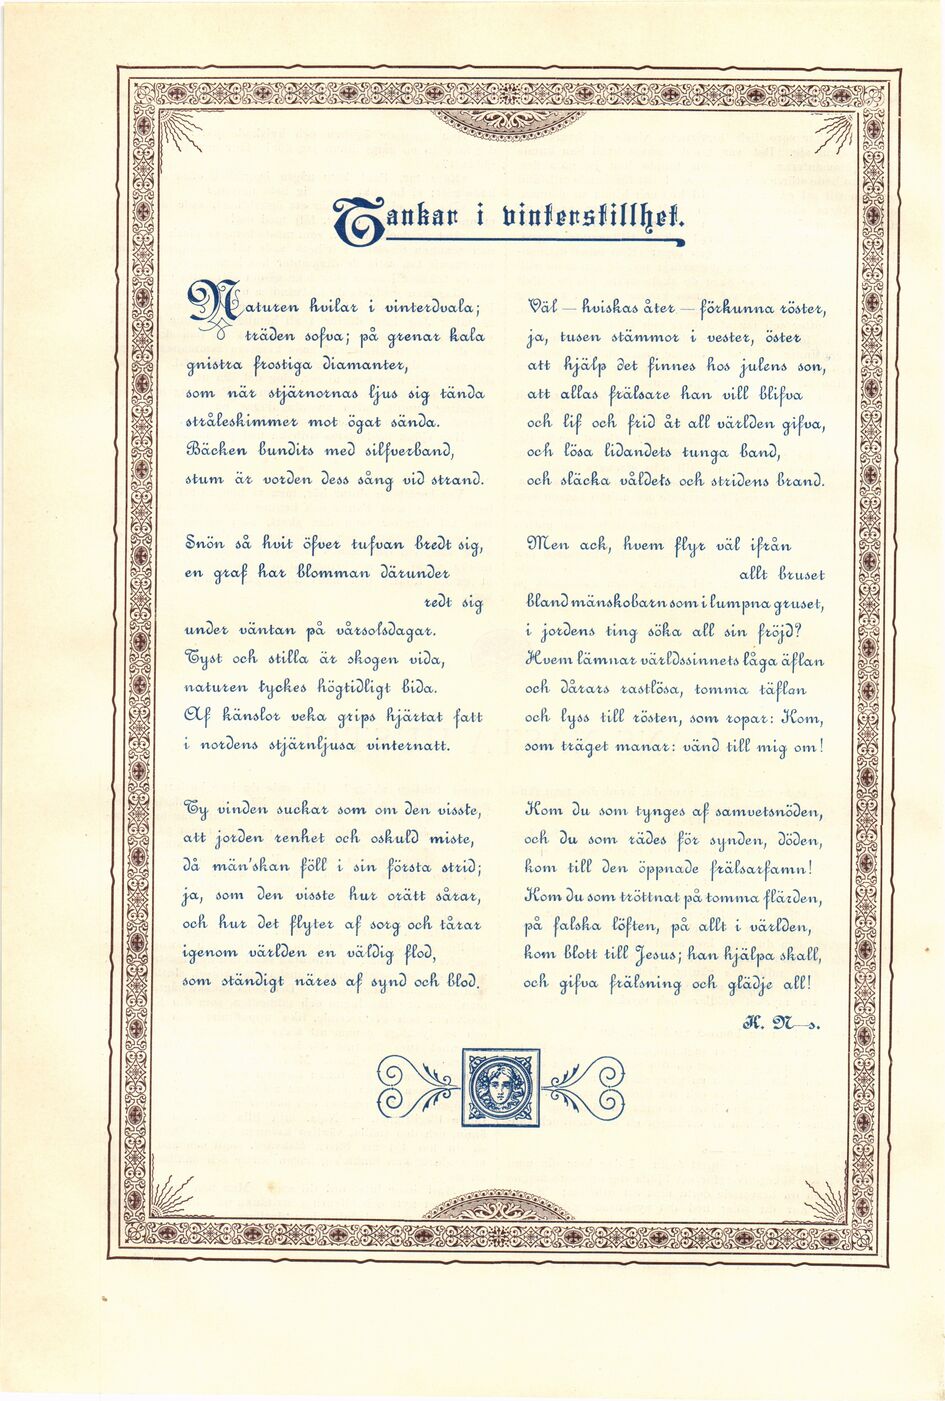 Tankar i vinterstillhet.
Naturen hvilar i vinterdvala;
träden sofva; på grenar kala
gnistra frostiga diamanter,
som när stjärnornas ljus sig tända
stråleskimmer mot ögat sända.
Bäcken bundits med silfverband,
stum är vorden dess sång vid strand.
Snön så hvit öfver tufvan bredt sig,
en graf har blomman därunder
redt sig
under väntan på vårsolsdagar.
Tyst och stilla är skogen vida,
naturen tyckes högtidligt bida.
Af känslor veka grips hjärtat fatt
i nordens stjärnljusa vinternatt.
Ty vinden suckar som om den visste,
att jorden renhet och oskuld miste,
då män'skan föll i sin första strid;
ja, som den visste hur orätt sårar,
och hur det flyter af sorg och tårar
igenom världen en väldig flod,
som ständigt näres af synd och blod.
Väl — hviskas åter — förkunna röster,
ja, tusen stämmor i vester, öster
att hjälp det finnes hos julens son,
att allas frälsare han vill blifva
och lif och frid åt all världen gifva,
och lösa lidandets tunga band,
och släcka våldets och stridens brand.
Men ack, hvem flyr väl ifrån
allt bruset
bland mänskobarn som i lumpna gruset,
i jordens ting söka all sin fröjd?
Hvem lämnar världssinnets låga äflan
och dårars rastlösa, tomma täflan
och lyss till rösten, som ropar: Kom,
som träget manar: vänd till mig om!
Kom du som tynges af samvetsnöden,
och du som rädes för synden, döden,
kom till den öppnade frälsarfamn!
Kom du som tröttnat på tomma flärden,
på falska löften, på allt i världen,
kom blott till Jesus; han hjälpa skall,
och gifva frälsning och glädje all!
K. N—s.